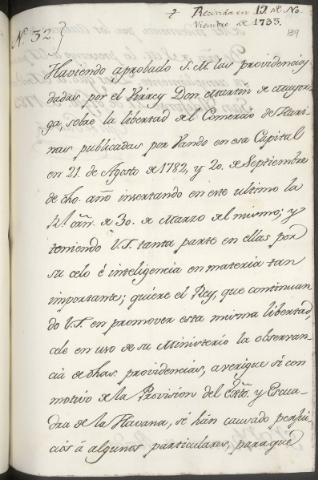 Recivida en 12 de No-
viembre de 1783.
189
N.° 32
Haviendo aprobado S.M. las providencias
dadas por el Virrey Don Martin de Mayor-
ga, sobre la libertad del Comercio de Hari-
nas publicadas por Vando en esa Capital
en 21. de Agosto de 1782, y 20. de Septiembre
de dho. año insertando en este ultimo la
Rl. orn. de 30. de Marzo del mismo; y
teniendo V.S. tanta parte en ellas por
su celo é inteligencia en materia tan
importante; quiere el Rey, que continuan-
do V.S. en promover esta misma libertad,
cele en uso de su Ministerio la observan-
cia de dhas. providencias, averigue si con
motivo de la Provision del Exto. y Escua-
dra de la Havana, se han causado perjui-
cios á algunos particulares, para que